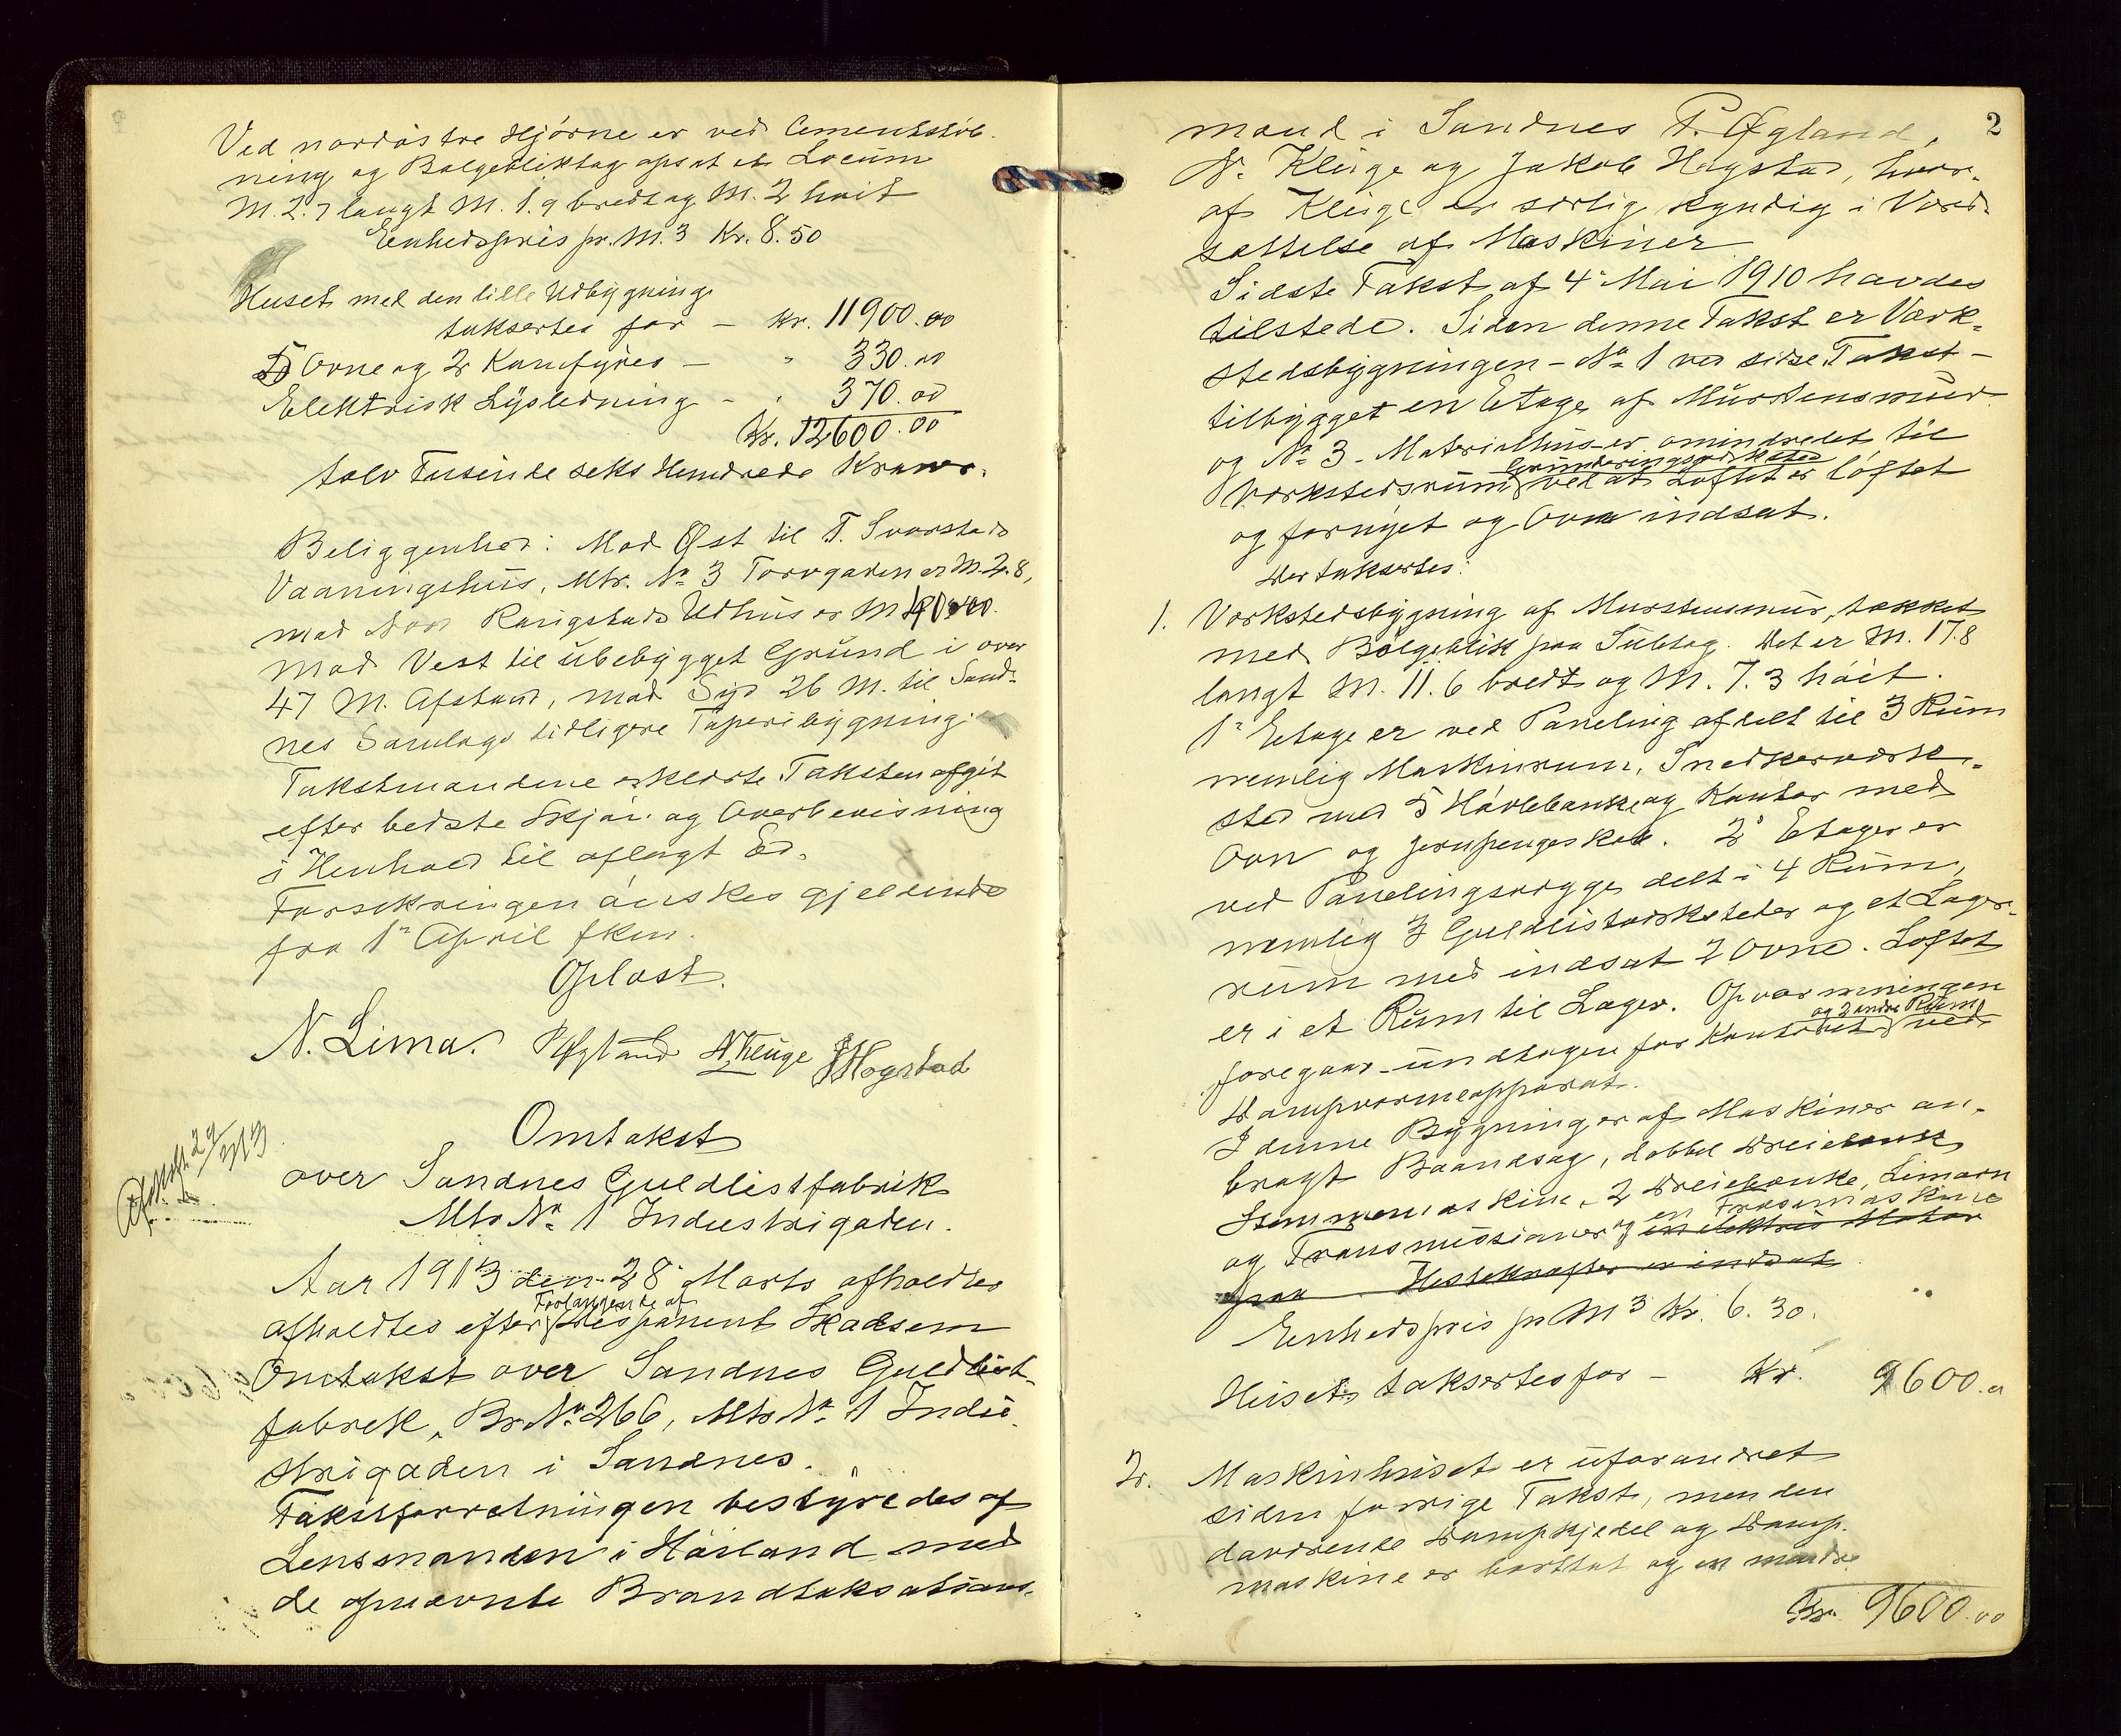 Ved nordöstre Hjörne er ved Cementstöb-
ning og Bølgebliktag opsat et Locum
M. 2.7 langt M. 1.9 bredt og M. 2 höit
Eenhedspris pr. M.3 Kr. 8.50
Huset med den lille Udbygning
taksertes for - Kr. 11900.00
5 Ovne og 2 Komfyrer - " 330.00
Elektrisk Lysledning - " 370.00
Kr. 12600.00
tolv Tusinde seks Hundrede Kroner.
Beliggenhed: Mod Øst til T. Svarstads
Vaaningshus, Mtr. No 3 Torvgaden er M. 2.8,
mod Nord Rangstads Udhus er M
Mod Vest til übebygget Grund i over
47 M. Afstand, mod Syd 26 M. til Sand-
nes Samlags tidligere Taperibygning.
Takstmændene erklærte Taksten afgit
efter bedste Skjön og Overbevisning
i Henhold til aflagt Ed.
Forsikringen önskes gjeldende
fra 1ste April fkm.
Oplæst.
N. Lima. P. Øgland N. Kluge J. Hogstad
Omtakst
over Sandnes Guldlistfabrik
Mtr No 1 Industrigaden.
Aar 1913 den 28 Marts afholdtes
Forlangende af
afholdtes efter Disponent Skadsem
Omtakst over Sandnes Guldlist-
fabrik, Br. No 266, Mtr No 1 Indu-
strigaden i Sandnes.
Takstforretningen bestyredes af
Lensmanden i Höiland med
de opnævnte Brandtaksations-
2
mænd i Sandnes P. Øgland,
N. Kluge og Jakob Hogstad, hvor-
af Kluge er særlig kyndig i Værd-
sættelse af Maskiner
Sidste Takst af 4de Mai 1910 havdes
tilstede. Siden denne Takst er Værk-
stedsbygningen - No 1 ved sidse Takst -
tilbygget en Etage af Murstensmur
og No 3 - Materialhus er omindredet til
Grunderingsværksted
Værkstedsrum ved at Loftet er löftet
og fornyet og Ovn indsat.
Der taksertes:
1. Værkstedsbygning af Murstensmur, tækket
med Bölgeblik paa Sutag. Det er M. 17.8
langt M. 11.6 bredt og M. 7.3 höit.
1ste Etage er ved Paneling afdelt til 3 Rum
nemlig Maskinrum, Snedkerværk-
sted med 5 Hövlebænke og Kontor med
Ovn og Jernpengeskab. 2den Etage er
ved Panelingsvægge delt i 4 Rum,
nemlig 3 Guldlistværksteder og et Lager-
rum med indsat 2 Ovne. Loftet
er i et Rum til Lager. Opvarmningen
og 2 andre Rum
foregaar - undtagen for Kontoret ved
Dampvarmeapparat.
I denne Bygning er af Maskiner an-
bragt Baandsag, dobbel Dreiebænk
Stemmemaskine, 2 Dreiebænke, Limovn
en Fræsemaskine
og Transmissioner og en elektris Motor
paa Hestekræfter er indsat
Eenhedspris pr M3 Kr. 6.30.
Huset taksertes for - Kr. 9600.00
2. Maskinhuset er uforandret
siden forrige Takst, men den
daværende Dampkjedel og Damp-
maskine er borttat og en mindre
Kr. 9600.00